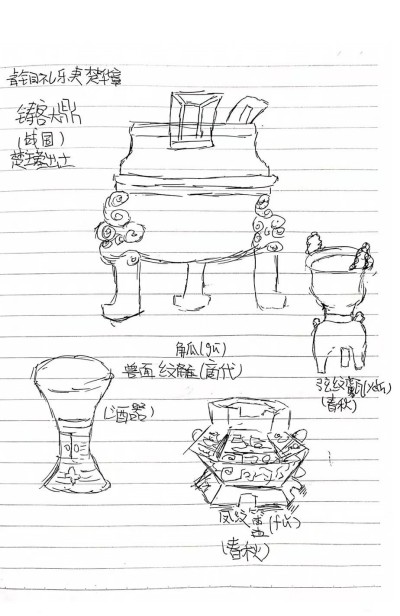 青铜礼乐 楚华章
铸客大鼎
(战国)
楚王墓出土
觚(gū)
兽面纹 (商代)
(酒器)
弦纹甗(yǎn)
(春秋)
凤纹簠(fǔ)
(春秋)